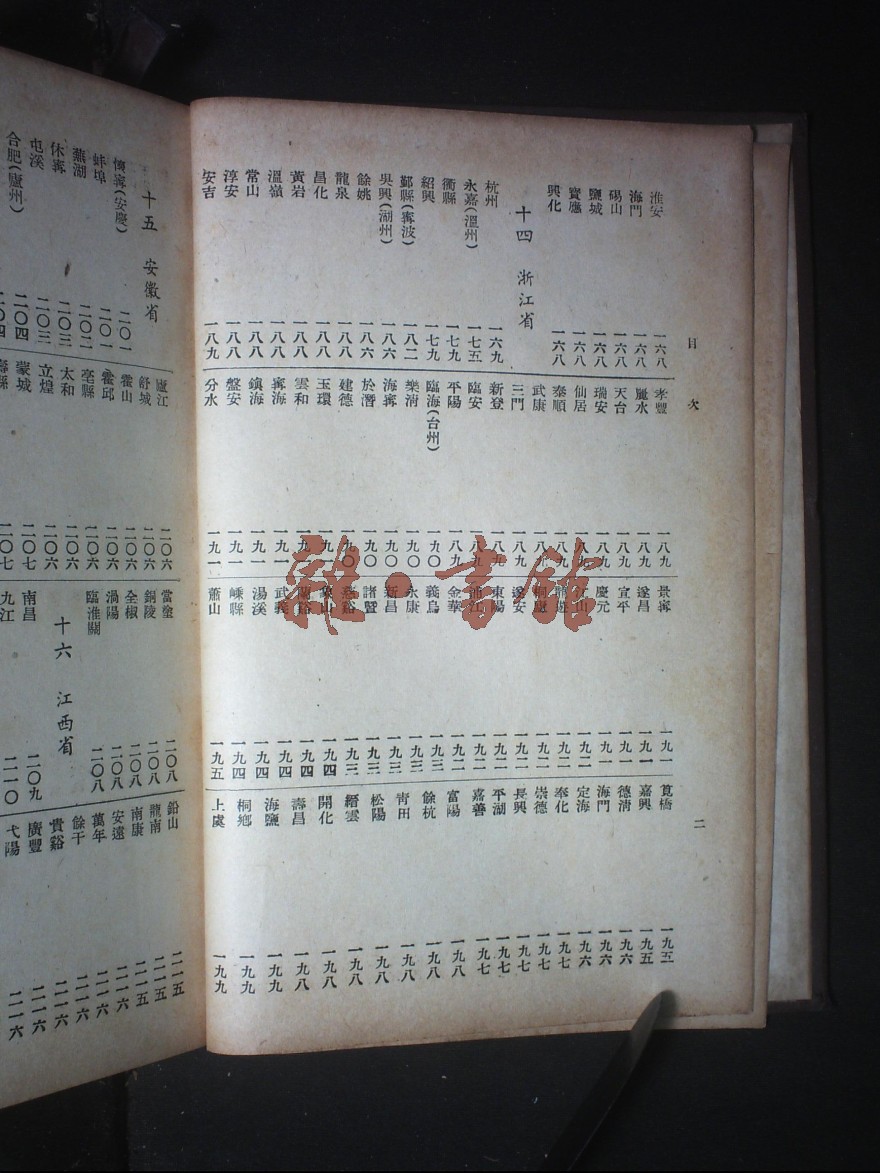 目次
二
淮安 一六八
海門 一六八
碭山 一六八
鹽城 一六八
寶應 一六八
興化 一六八
十四 浙江省
杭州 一六九
永嘉(溫州) 一七五
衢縣 一七九
紹興 一七九
鄞縣(寧波) 一八二
吳興(湖州) 一八六
餘姚 一八八
龍泉 一八八
昌化 一八八
黃岩 一八八
溫嶺 一八八
常山 一八八
淳安 一八八
安吉 一八九
孝豐 一八九
麗水 一八九
天台 一八九
瑞安 一八九
仙居 一八九
泰順 一八九
武康 一八九
三門 一八九
新登 一八九
臨安 一八九
平陽 一八九
臨海(台州) 一九〇
樂清 一九〇
海寧 一九〇
於潛 一九〇
建德 一九〇
玉環 一九一
雲和 一九一
寧海 一九一
鎮海 一九一
盤安 一九一
分水 一九一
景寧 一九一
遂昌 一九一
宣平 一九一
慶元 一九一
江山 一九二
龍游 一九二
桐廬 一九二
遂安 一九二
東陽 一九二
浦江 一九二
金華 一九二
義烏 一九三
永康 一九三
新昌 一九三
諸暨 一九三
慈谿 一九三
象山 一九四
蘭谿 一九四
武義 一九四
湯溪 一九四
嵊縣 一九四
蕭山 一九五
筧橋 一九五
嘉興 一九五
德清 一九六
海門 一九六
定海 一九六
奉化 一九七
崇德 一九七
長興 一九七
平湖 一九七
嘉善 一九七
富陽 一九八
餘杭 一九八
青田 一九八
松陽 一九八
縉雲 一九八
開化 一九八
壽昌 一九八
海鹽 一九九
桐鄉 一九九
上虞 一九九
雜·書館
十五 安徽省
懷寧(安慶) 二〇一
蚌埠 二〇一
蕪湖 二〇二
休寧 二〇三
屯溪 二〇三
合肥(廬州) 二〇四
廬江 二〇六
舒城 二〇六
霍山 二〇六
霍邱 二〇六
亳縣 二〇六
太和 二〇六
立煌 二〇六
蒙城 二〇七
壽縣 二〇七
當塗 二〇八
銅陵 二〇八
全椒 二〇八
渦陽 二〇八
臨淮關 二〇八
十六 江西省
南昌 二〇九
九江 二一〇
鉛山 二一五
龍南 二一五
南康 二一五
安遠 二一六
萬年 二一六
餘干 二一六
貴谿 二一六
廣豐 二一六
弋陽 二一六